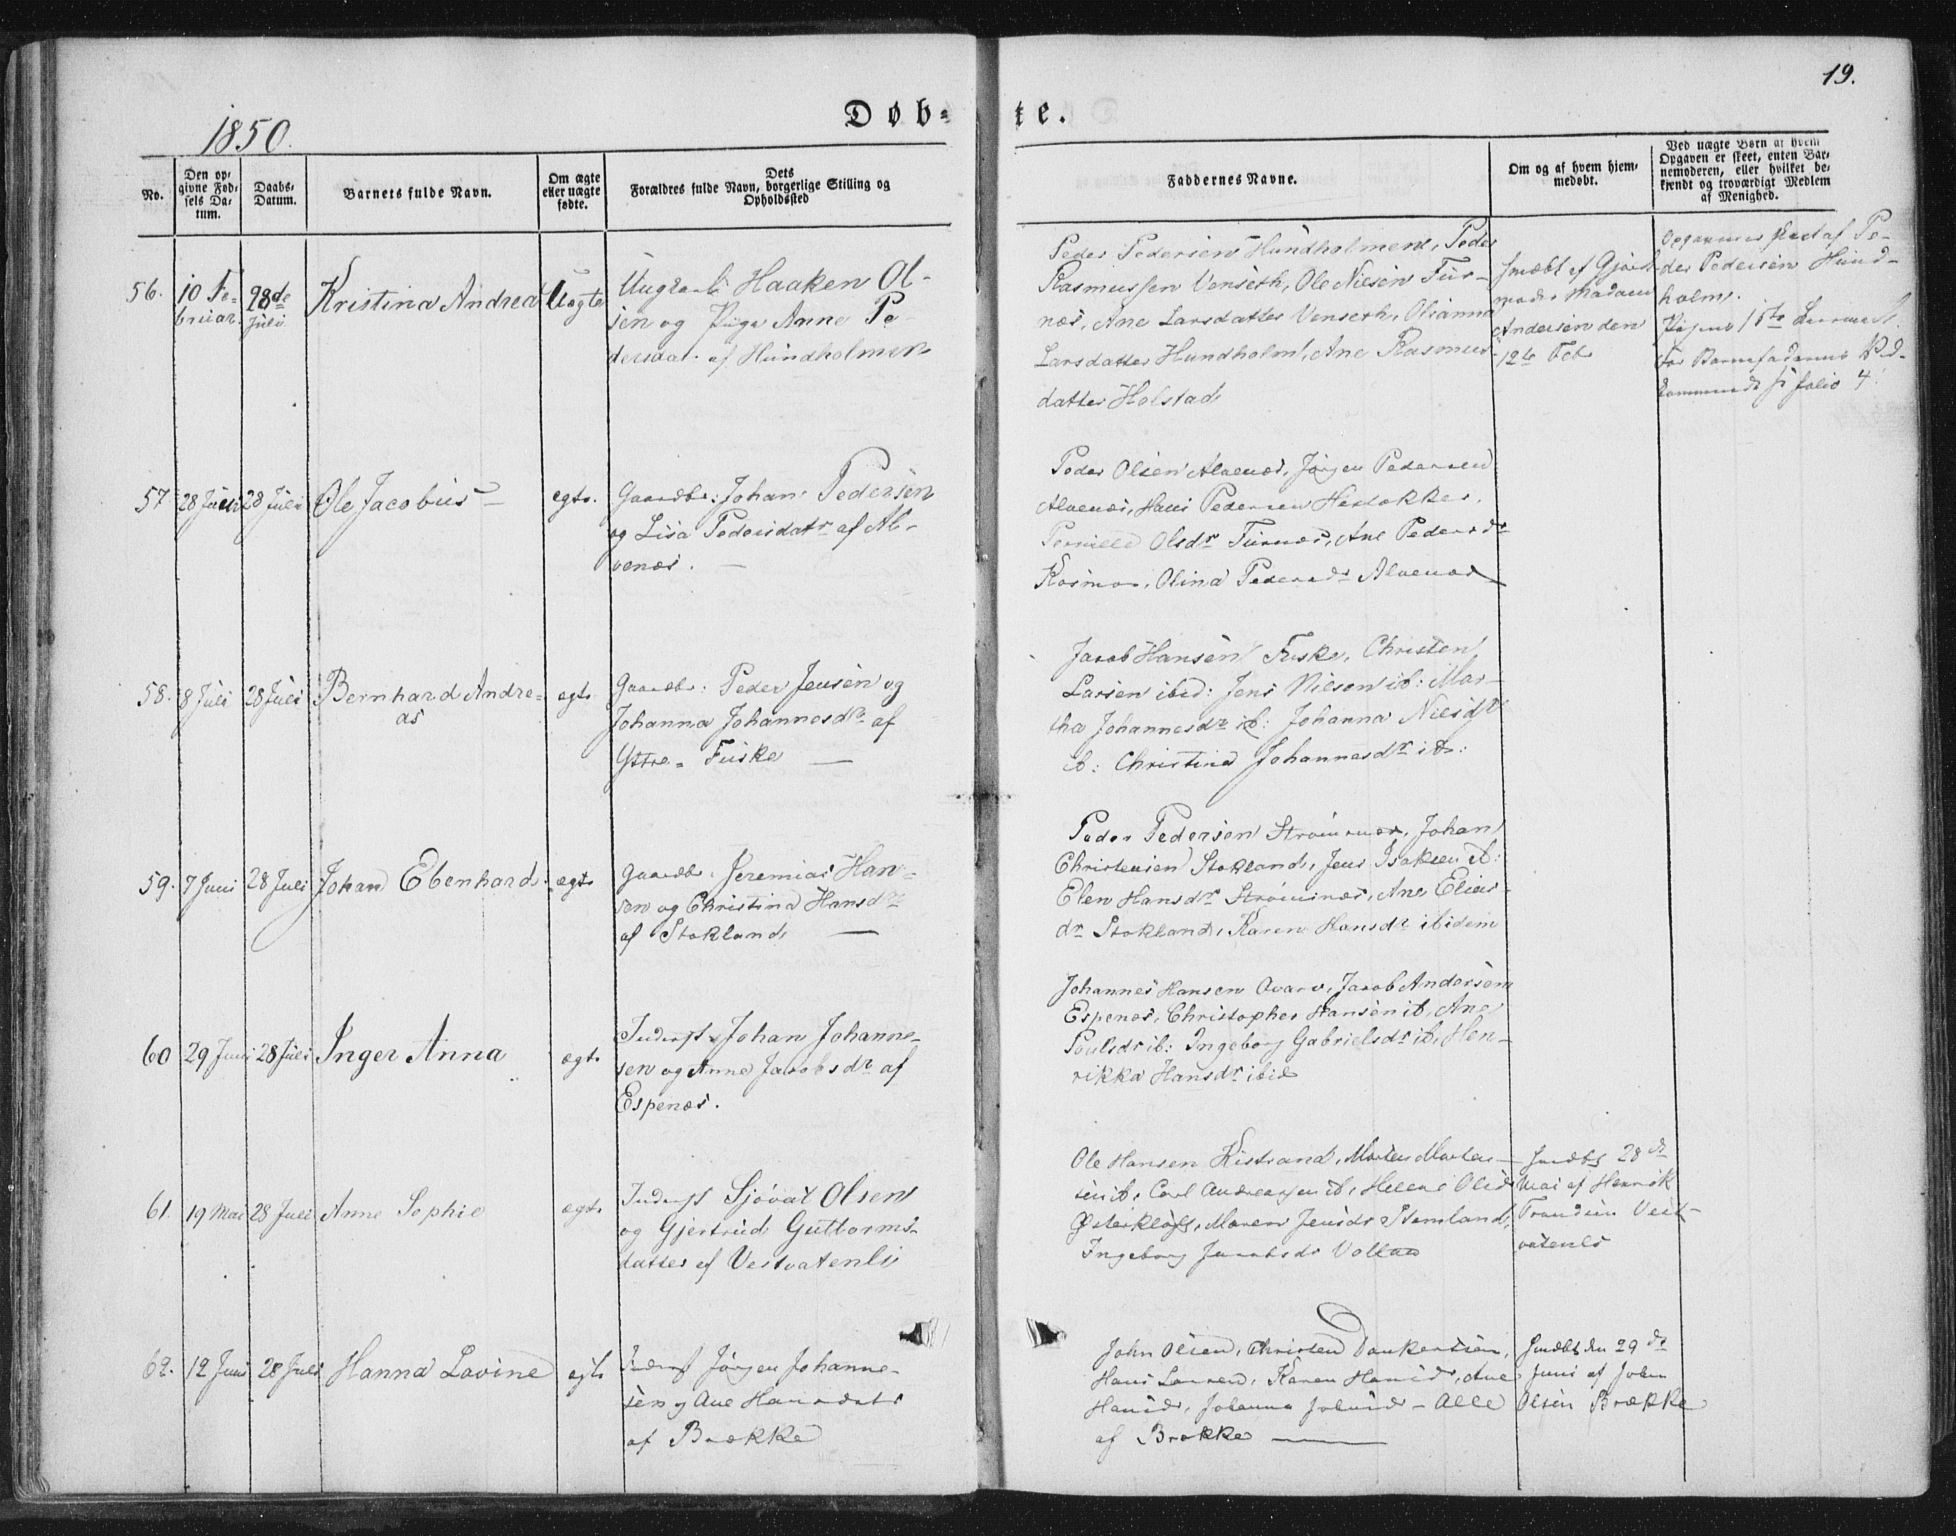 19.
1850.
Døb-
te.
No.
Den op-
givne Fød-
sels Da-
tum.
Daabs-
Datum.
Barnets fulde Navn.
Om ægte
eller uægte
fødte.
Dets
Forældres fulde Navn, borgerlige Stilling og
Opholdssted
Faddernes Navne.
Om og af hvem hjem-
medøbt.
Ved uægte Børn af hvem
Opgaven er skeet, enten Bar-
nemoderen, eller hvilket be-
kjendt og troværdigt Medlem
af Menighed.
56.
10 Fe-
bruar.
28de
Juli
Kristina Andrea
Uægte
Ungkarl Haaken Ol-
sen og Pige Anne Pe-
dersdat. af Hundholmen
Peder Pedersen Hundholmen, Peder
Rasmussen Venseth, Ole Nilsen Fur-
næs, Ane Larsdatter Venseth, Olianna
Larsdatter Hundholm, Ane Rasmus-
datter Holstad
af Gjord-
moder Madam
Andersen den
12te Feb
Opgaven skeet af Pe-
der Pedersen Hund-
holm.
Pigens 1ste
For Barnefaderens Ved-
kommende folio 4.
57
28 Juni
28 Juli
Ole Jacobus
egte.
Gaardbr: Johan Pedersen
og Lisa Pedersdatr af Al-
venæs.
Peder Olsen Alvenæs, Jørgen Pedersen
Alvenæs, Hans Pedersen
Pernille Olsdr Furnæs, Ane Pedersdr
Kosmo, Olina Pedersdr Alvenæs
58.
8 Juli
28 Juli
Bernhard Andre-
as
egte
Gaardbr: Peder Jensen og
Johanna Johannesdr af
Yttre- Fuske
Jacob Hansen Fuske, Christen
Larsen ibid: Jens Nilsen ib: Mar-
tha Johannesdr ib: Johanna Nilsdr
ib: Christina Johannesdr ib:
59.
7 Juni
28 Juli
Johan Ebenhard
ægte
Gaardbr. Jeremias Han-
sen og Christina Hansdr
af Stokland
Peder Pedersen Strømsnæs, Johan
Christensen Stokland, Jens Isaksen ib:
Elen Hansdr Strømsnæs, Ane Elias-
dr Stokland, Karen Hansdr ibidem
60
29 Juni
28 Juli
Inger Anna
ægte
Inderst Johan Johanne-
sen og Anne Jacobsdr af
Espenæs.
Johannes Hansen Qvarv, Jacob Andersen
Espenæs, Christopher Hansen ib, Ane
Poulsdr ib: Ingeborg Gabrielsdr ib, Hen-
rikka Hansdr ibid
61.
19 Mai
28 Juli
Anne Sophie
ægte
Inderst Sjøvat Olsen
og Gjertrud Guttorms-
datter af Vestvatenli
Ole Hansen Kistrand, Morten Morten-
sen ib, Carl Andreassen ib, Helene Olsdr
Østerkløft, Maren Jensdr Stemland,
Ingeborg Jacobsdr Vollan
28de
Mai af Henrik
Trondsen Vest-
vatenli
62.
12 Juni
28 Juli
Hanna Lovine
egte
Inderst Jørgen Johanne-
sen og Ane Hansdatr
af Brække
John Olsen, Christen Dankertsen,
Hans Larsen, Karen Hansdr, Ane
Hansdr, Johanna Johnsdr - Alle
af Brække
den 29de
Juni af John
Olsen Brække